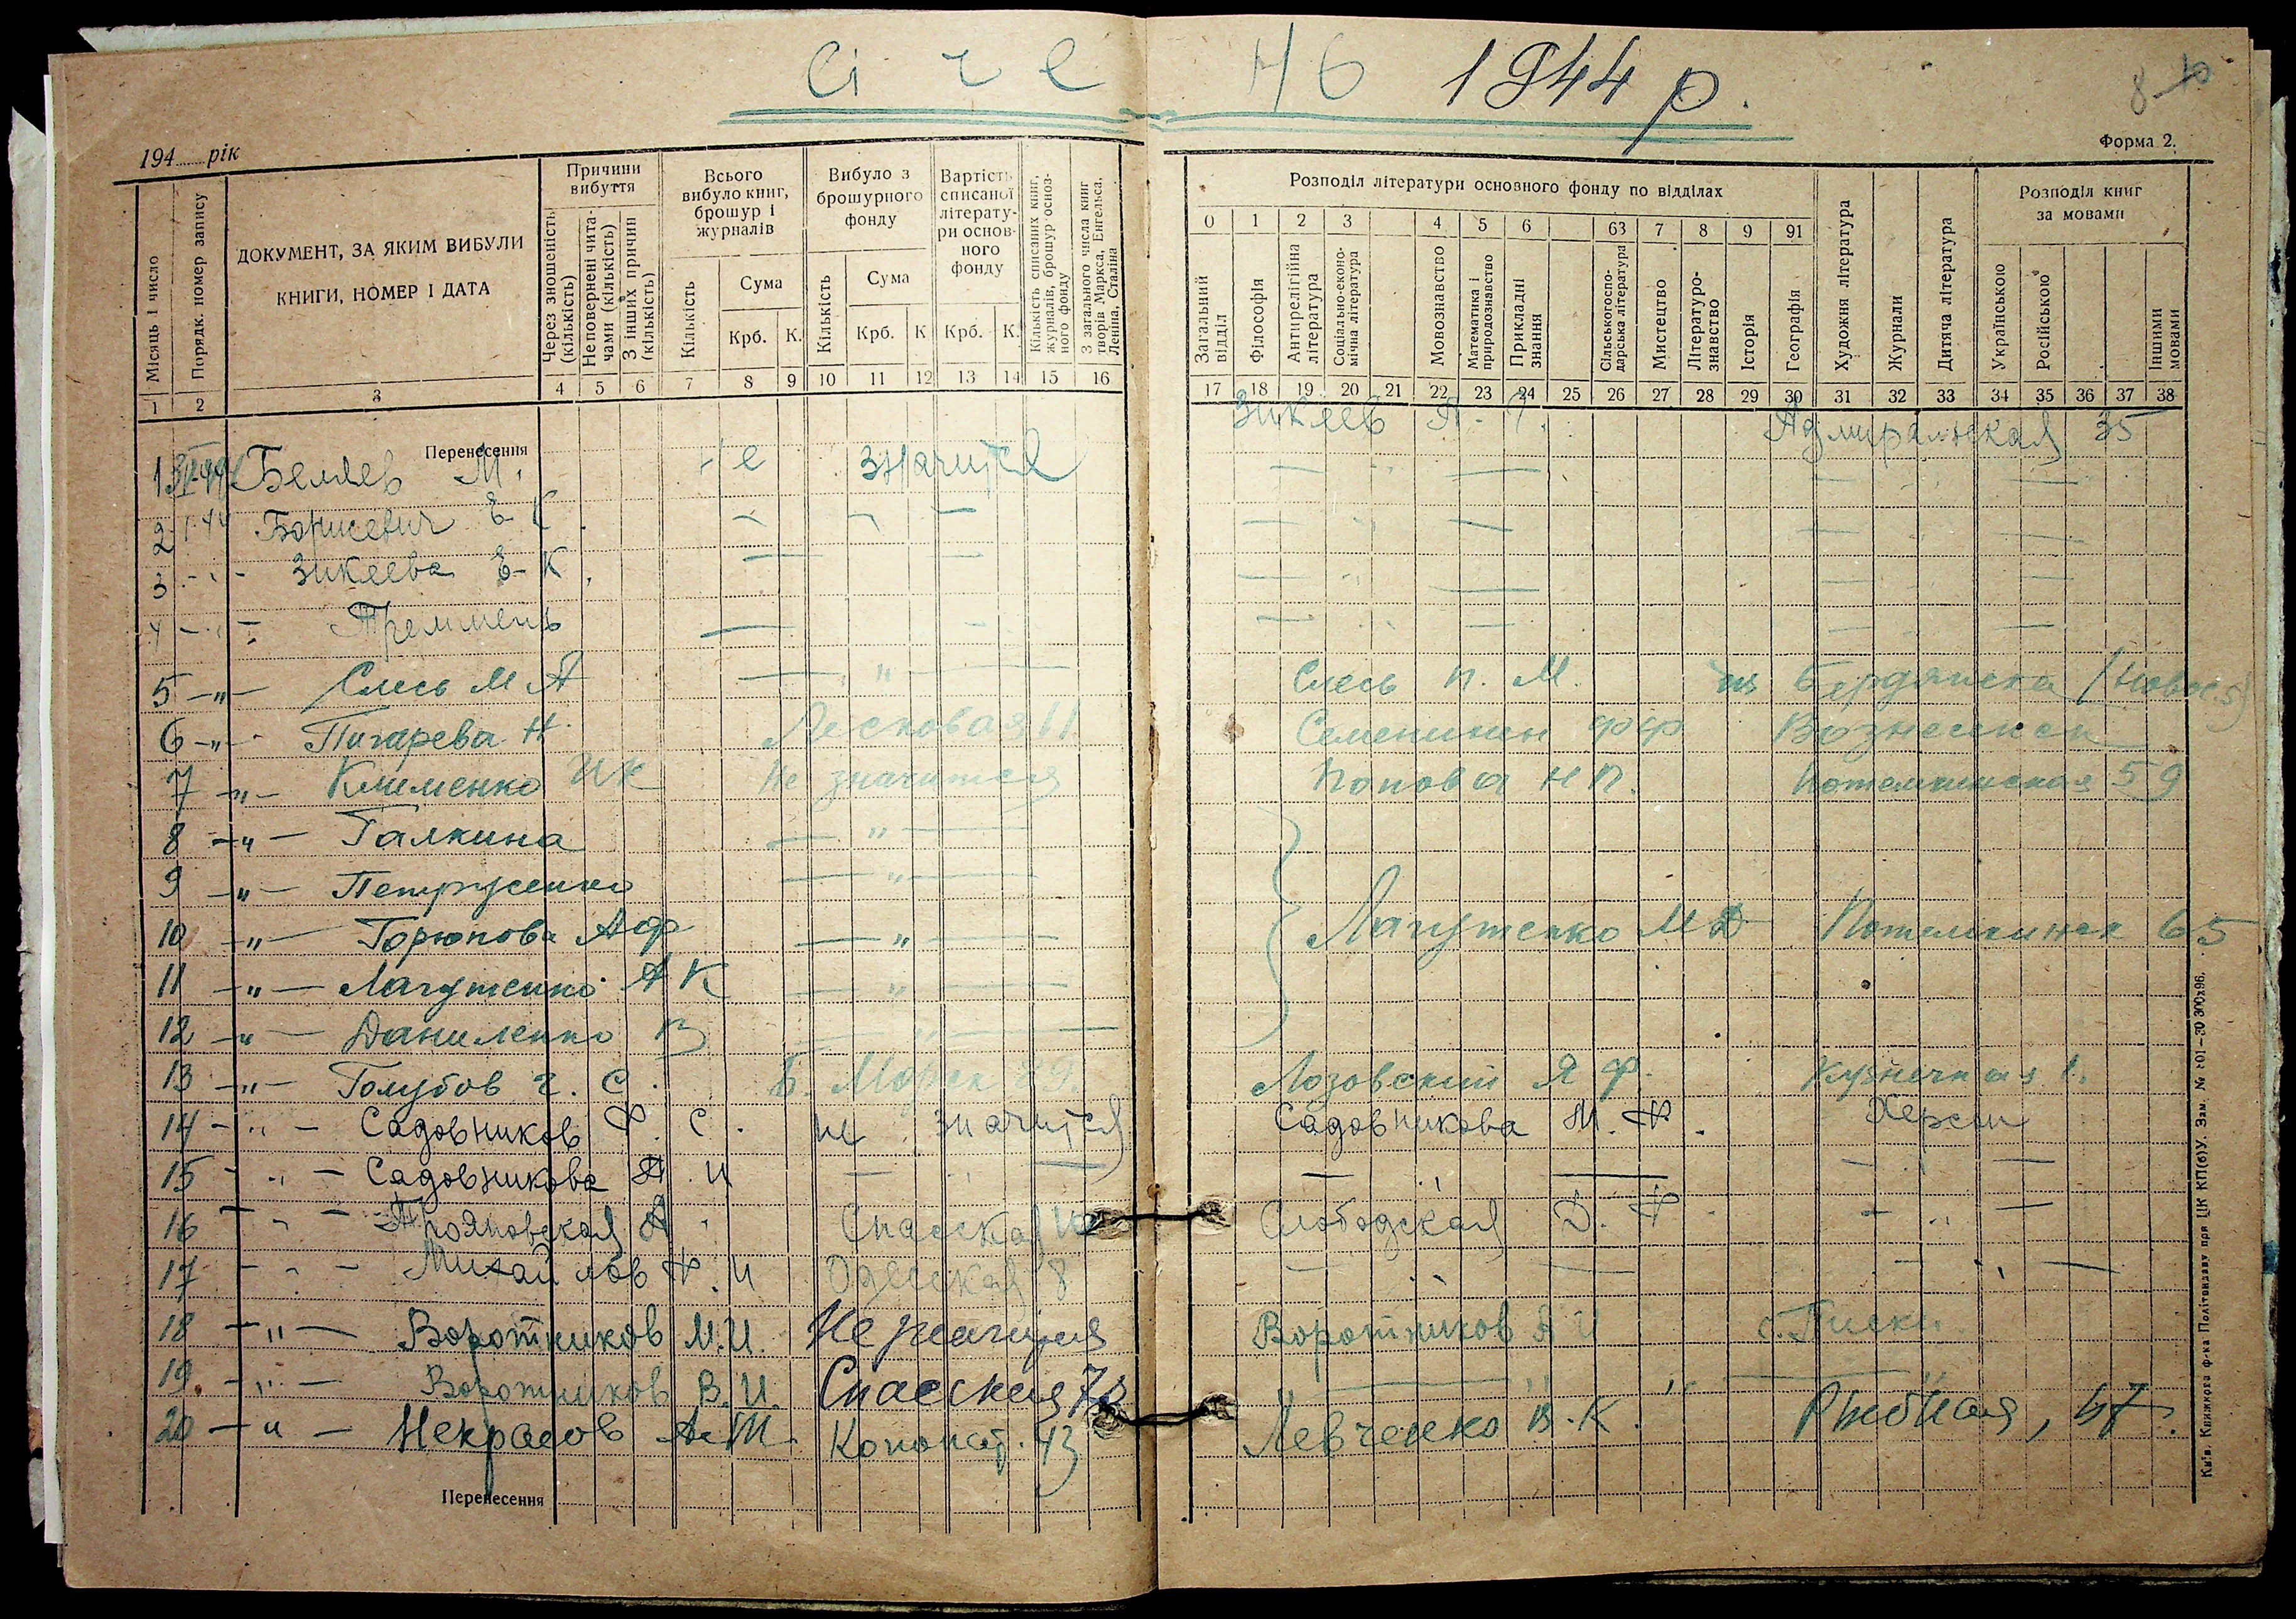 Січень 1944 р.
8
194 рік
Форма 2.
Місяць і число
Порядк. номер запису
ДОКУМЕНТ, ЗА ЯКИМ ВИБУЛИ
КНИГИ, НОМЕР І ДАТА
Причини вибуття
Через зношеність (кількість)
Неповернені читачами (кількість)
З інших причин (кількість)
Всього вибуло книг, брошур і журналів
Кількість
Сума
Крб. К.
Вибуло з брошурного фонду
Кількість
Сума
Крб. К
Вартість списаної літератури основного фонду
Крб. К.
Кількість списаних книг, журналів, брошур основного фонду
З загального числа книг творів Маркса, Енгельса, Леніна, Сталіна
Розподіл літератури основного фонду по відділах
0 1 2 3 4 5 6 63 7 8 9 91
Загальний відділ
Філософія
Антирелігійна література
Соціально-економічна література
Мовознавство
Математика і природознавство
Прикладні знання
Сільськогосподарська література
Мистецтво
Літературознавство
Історія
Географія
Художня література
Журнали
Дитяча література
Розподіл книг за мовами
Українською
Російською
Іншими мовами
1 2 3 4 5 6 7 8 9 10 11 12 13 14 15 16
17 18 19 20 21 22 23 24 25 26 27 28 29 30 31 32 33 34 35 36 37 38
Перенесення
1 Беляев М. Не значится Зикеев Адмиральская 35
2 Борисевич Е К. — — — — " — — " —
3 — " — Зикеева Е К. — — — " — — " —
4 — " — Тремпень — — " — — " —
5 — " — Слесь М А — " — Слесь П. М. из Бердянска
6 — " — Пигарева Н. Песковая 11 Вознесенск
7 — " — Клименко И К Не значится Попова Н П. Потемкинская 59
8 — " — Галкина — " —
9 — " — Петрусенко — " —
10 — " — Горюнова А Ф — " — Лагутенко М Д Потемкинск 65
11 — " — Лагутенко А К — " —
12 — " — Даниленко В — " —
13 — " — Голубов Г. С. Б. Морск 89. Лозовский Я Ф. Кузнечная 1.
14 — " — Садовников Ф. С. не значится Садовникова М. Ф. Херсон
15 — " — Садовникова А. И — " — — " — — " —
16 — " — Трояновская А. Спасская Слободская Д. Ф. — " —
17 — " — Михайлов Ф. И Одесская 8 — " — — " —
18 — " — Воротников М. И. Не значится Воротников И с. Писки
19. — " — Воротников В. И. Спасская — " — — " —
20 — " — Некрасов А. Т. 43 Левченко В. К. Рыбная, 47.
Перенесення
Київ. Книжкова ф-ка Політвидаву при ЦК КП(б)У. Зам.